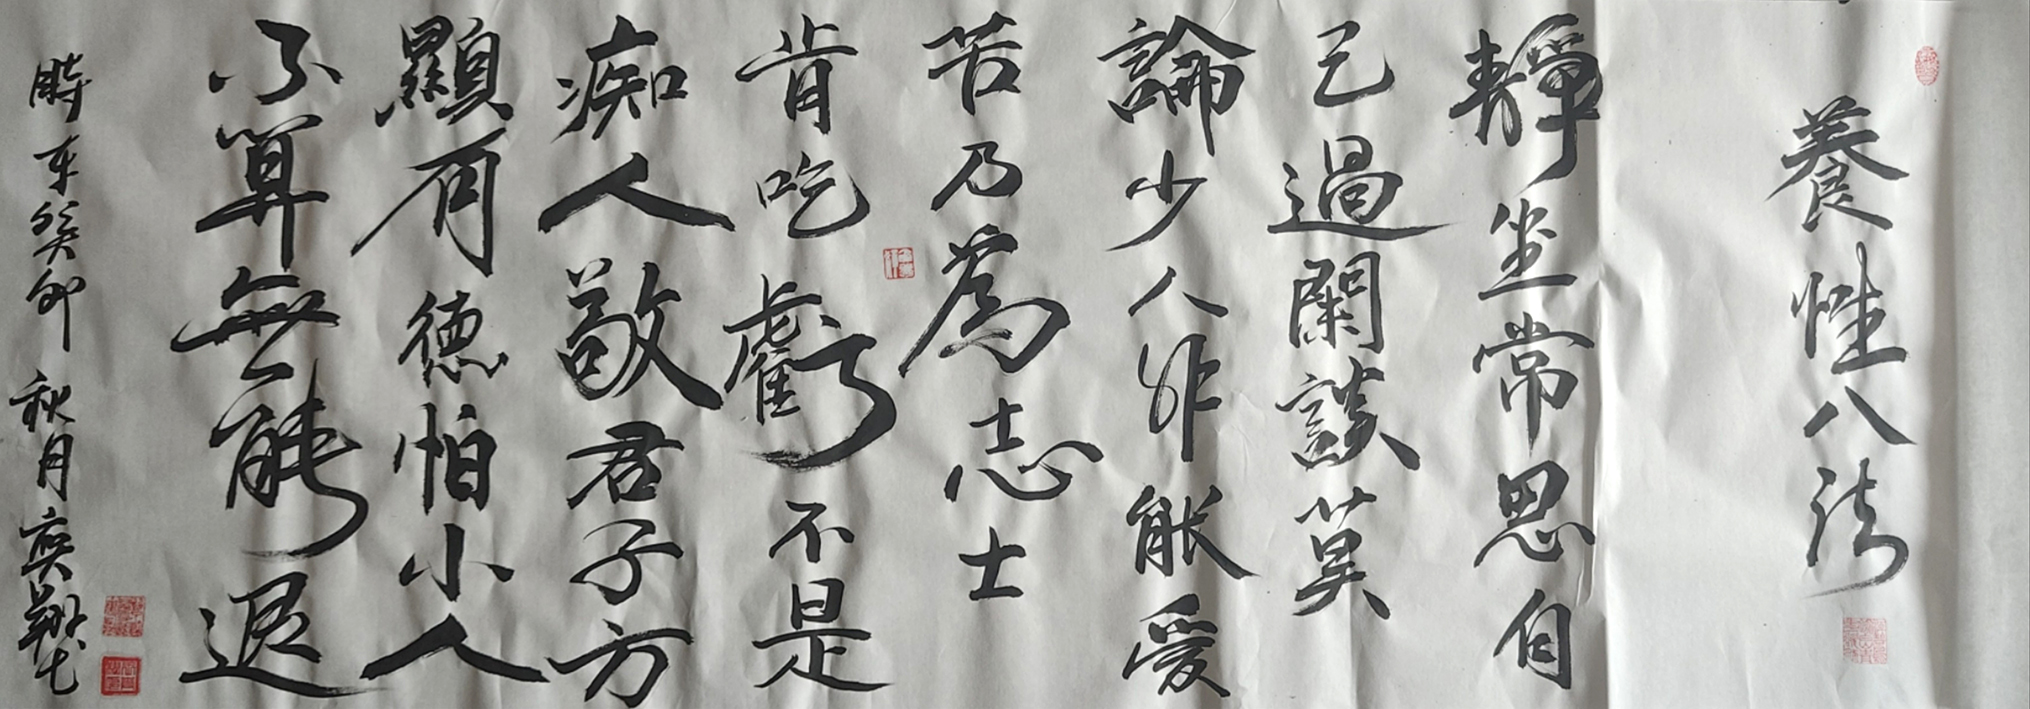 養性八法
靜坐常思自
己過閑談莫
論少人非能受
苦乃為志士
肯吃虧不是
痴人敬君子方
顯有德怕小人
不算無能退
時在癸卯秋月